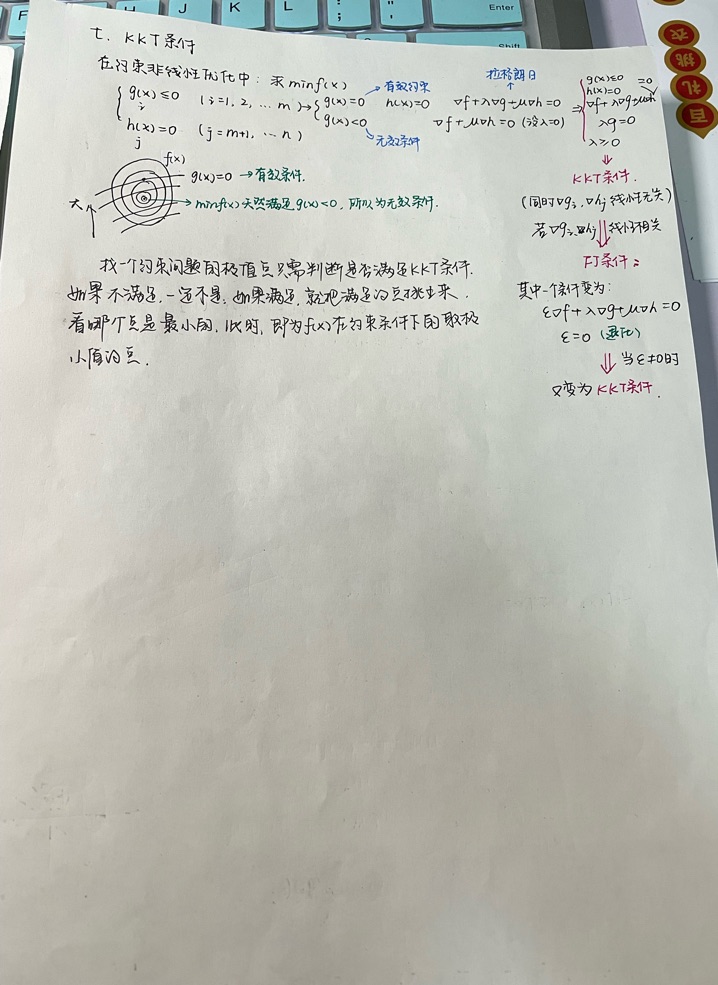 F
H
J
K
L
;
'
Enter
Shift
百
礼
挑
衣
七、KKT条件
在约束非线性优化中：求minf(x)
{ g(x)≤0 (i=1,2,…m) → { g(x)=0 →有效约束 h(x)=0 ▽f+λ▽g+μ▽h=0 →拉格朗日
i
g(x)<0 →无效条件 ▽f+μ▽h=0 (没λ=0)
h(x)=0 (j=m+1,…n)
j
⇒ { g(x)≤0
h(x)=0
▽f+λ▽g+μ▽h=0
λg=0
λ≥0
⇓
KKT条件.
(同时▽gi,▽hj线性无关)
若▽gi,▽hj ⇓ 线性相关
FJ条件：
其中一个条件变为：
ε▽f+λ▽g+μ▽h=0
ε=0 (退化)
⇓ 当ε≠0时
又变为KKT条件.
f(x)
g(x)=0 →有效条件.
大↑
→minf(x)天然满足g(x)<0，所以为无效条件.
找一个约束问题的极值点只需判断是否满足KKT条件.
如果不满足,一定不是,如果满足,就把满足的点挑出来,
看哪个点是最小的,此时,即为f(x)在约束条件下的取极
小值的点.